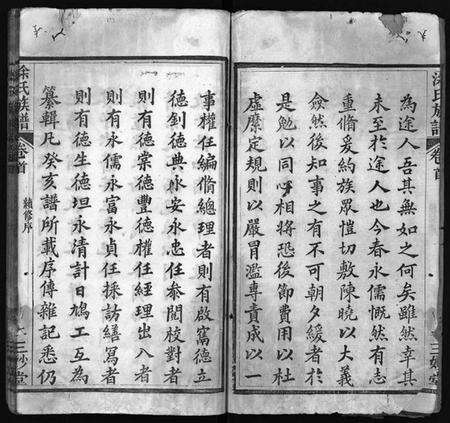 為途人吾其無如之何矣雖然幸其
未至於途人也今春永儒慨然有志
重脩爰約族眾愷切敷陳曉以大義
僉然後知事之有不可朝夕緩者於
是勉以同心相將恐後節費用以杜
虛糜定規則以嚴冒濫專責成以一
涂氏族譜
卷首
事權任編脩總理者則有啟富德立
德釗德典永安永忠任叅閱校對者
則有德棠德豐德權任經理出入者
則有永儒永富永貞任採訪繕寫者
則有德生德坦永清計日鳩工互為
纂輯凡癸亥譜所載序傳雜記悉仍
涂氏族譜
卷首
續修序